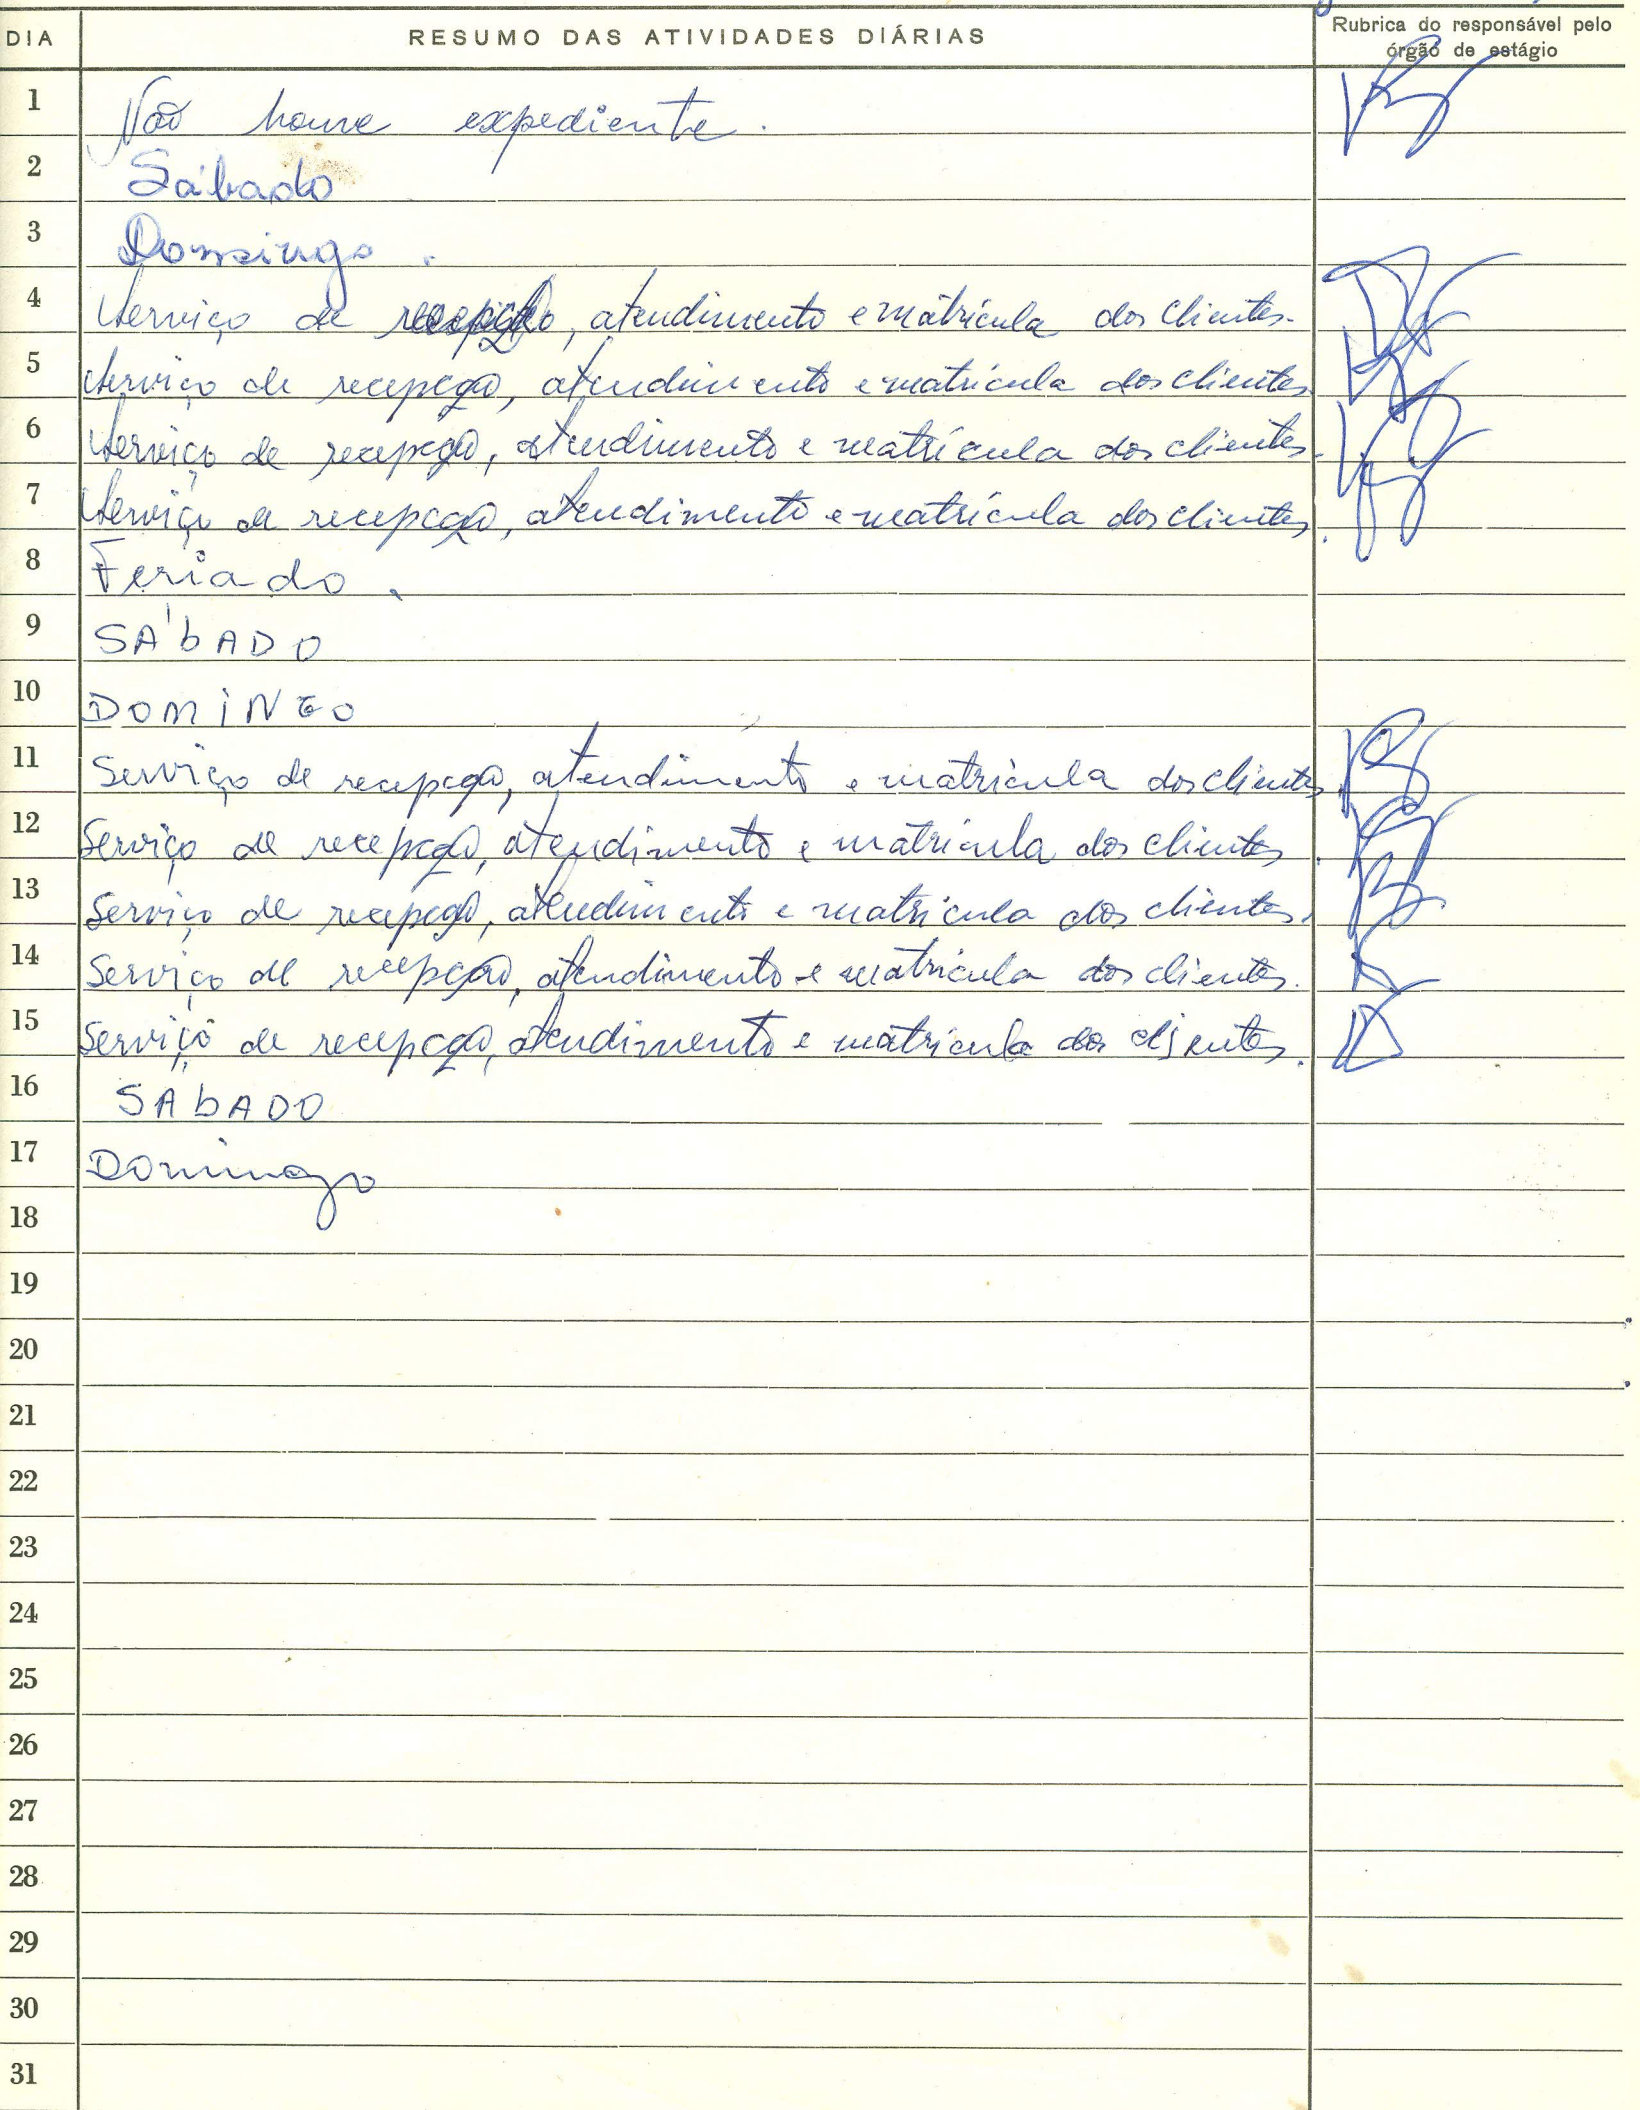 DIA RESUMO DAS ATIVIDADES DIÁRIAS Rubrica do responsável pelo
órgão de estágio
1 Não houve expediente.
2 Sábado
3 Domingo.
4 Serviço de recepção, atendimento e matrícula dos clientes.
5 Serviço de recepção, atendimento e matrícula dos clientes.
6 Serviço de recepção, atendimento e matrícula dos clientes.
7 Serviço de recepção, atendimento e matrícula dos clientes.
8 Feriado.
9 SÁbADO
10 DOMINGO
11 Serviço de recepção, atendimento e matrícula dos clientes.
12 Serviço de recepção, atendimento e matrícula dos clientes.
13 Serviço de recepção, atendimento e matrícula dos clientes.
14 Serviço de recepção, atendimento e matrícula dos clientes.
15 Serviço de recepção, atendimento e matrícula dos clientes.
16 SAbADO
17 Domingo
18
19
20
21
22
23
24
25
26
27
28
29
30
31